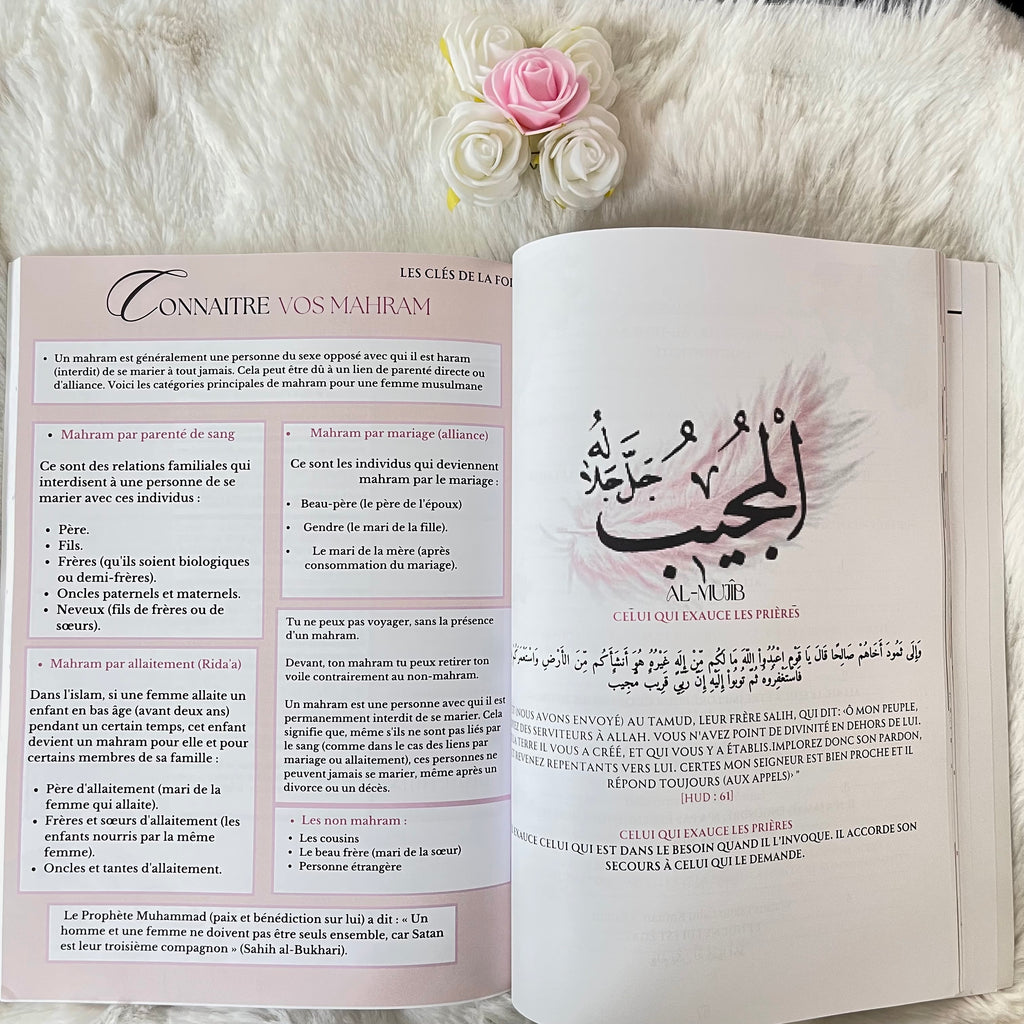 LES CLÉS DE LA FOI
CONNAITRE VOS MAHRAM
• Un mahram est généralement une personne du sexe opposé avec qui il est haram
(interdit) de se marier à tout jamais. Cela peut être dû à un lien de parenté directe ou
d'alliance. Voici les catégories principales de mahram pour une femme musulmane
• Mahram par parenté de sang
Ce sont des relations familiales qui
interdisent à une personne de se
marier avec ces individus :
• Père.
• Fils.
• Frères (qu'ils soient biologiques
ou demi-frères).
• Oncles paternels et maternels.
• Neveux (fils de frères ou de
sœurs).
• Mahram par allaitement (Rida'a)
Dans l'islam, si une femme allaite un
enfant en bas âge (avant deux ans)
pendant un certain temps, cet enfant
devient un mahram pour elle et pour
certains membres de sa famille :
• Père d'allaitement (mari de la
femme qui allaite).
• Frères et sœurs d'allaitement (les
enfants nourris par la même
femme).
• Oncles et tantes d'allaitement.
• Mahram par mariage (alliance)
Ce sont les individus qui deviennent
mahram par le mariage :
• Beau-père (le père de l'époux)
• Gendre (le mari de la fille).
• Le mari de la mère (après
consommation du mariage).
Tu ne peux pas voyager, sans la présence
d'un mahram.
Devant, ton mahram tu peux retirer ton
voile contrairement au non-mahram.
Un mahram est une personne avec qui il est
permanemment interdit de se marier. Cela
signifie que, même s'ils ne sont pas liés par
le sang (comme dans le cas des liens par
mariage ou allaitement), ces personnes ne
peuvent jamais se marier, même après un
divorce ou un décès.
• Les non mahram :
• Les cousins
• Le beau frère (mari de la sœur)
• Personne étrangère
Le Prophète Muhammad (paix et bénédiction sur lui) a dit : « Un
homme et une femme ne doivent pas être seuls ensemble, car Satan
est leur troisième compagnon » (Sahih al-Bukhari).
الْمُجِيبُ جَلَّ جَلَالُهُ
AL-MUJÎB
CELUI QUI EXAUCE LES PRIÈRES
وَإِلَى ثَمُودَ أَخَاهُمْ صَالِحًا قَالَ يَا قَوْمِ اعْبُدُواْ اللّهَ مَا لَكُم مِّنْ إِلَهٍ غَيْرُهُ هُوَ أَنشَأَكُم مِّنَ الأَرْضِ وَاسْتَعْمَرَكُمْ
فَاسْتَغْفِرُوهُ ثُمَّ تُوبُواْ إِلَيْهِ إِنَّ رَبِّي قَرِيبٌ مُّجِيبٌ
(NOUS AVONS ENVOYÉ) AU TAMUD, LEUR FRÈRE SALIH, QUI DIT: ‹Ô MON PEUPLE,
DES SERVITEURS À ALLAH. VOUS N'AVEZ POINT DE DIVINITÉ EN DEHORS DE LUI.
TERRE IL VOUS A CRÉÉ, ET QUI VOUS Y A ÉTABLIS.IMPLOREZ DONC SON PARDON,
REVENEZ REPENTANTS VERS LUI. CERTES MON SEIGNEUR EST BIEN PROCHE ET IL
RÉPOND TOUJOURS (AUX APPELS)› "
[HUD : 61]
CELUI QUI EXAUCE LES PRIÈRES
EXAUCE CELUI QUI EST DANS LE BESOIN QUAND IL L'INVOQUE. IL ACCORDE SON
SECOURS À CELUI QUI LE DEMANDE.